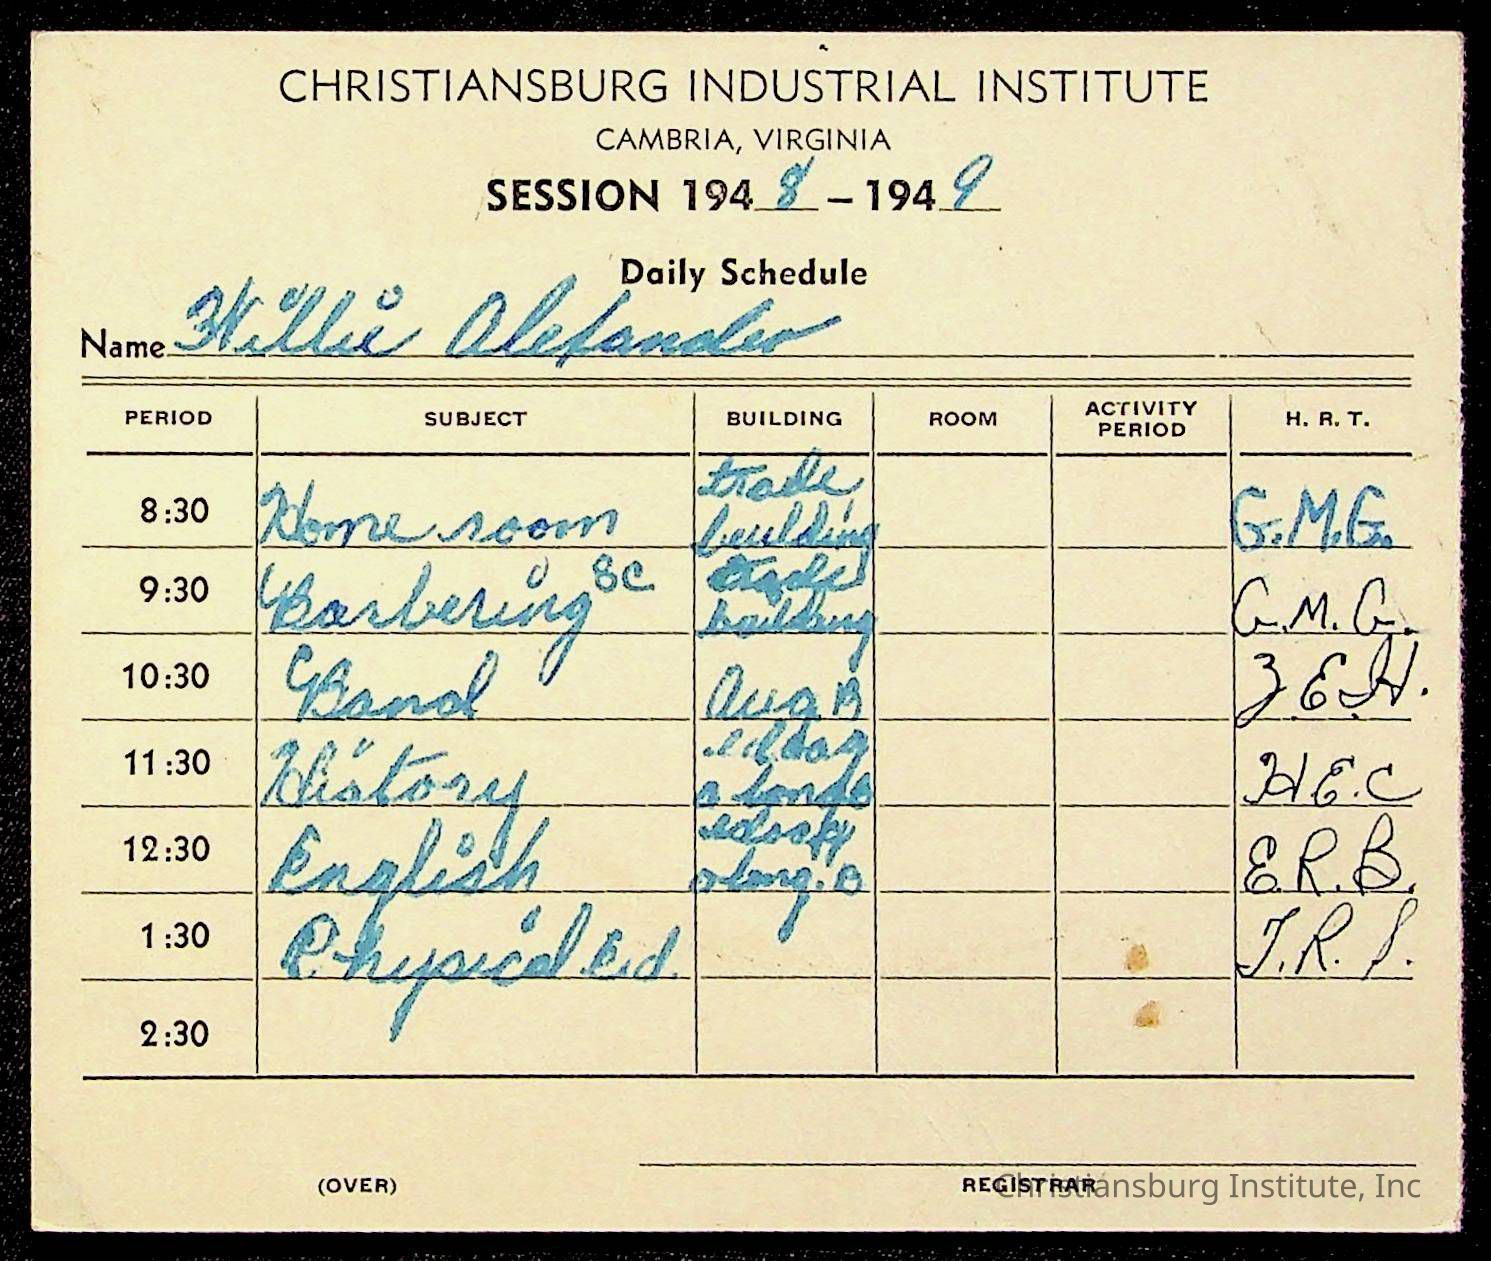 CHRISTIANSBURG INDUSTRIAL INSTITUTE
CAMBRIA, VIRGINIA
SESSION 1948 – 1949
Daily Schedule
Name Willie Alexander
PERIOD SUBJECT BUILDING ROOM ACTIVITY PERIOD H. R. T.
8:30 Home room trade building G.M.G.
9:30 Barbering SC trade building G.M.G.
10:30 Band Aug B Z.E.H.
11:30 History H.E.C
12:30 English E.R.B.
1:30 Physical Ed.
2:30
(OVER) REGISTRAR
Christiansburg Institute, Inc